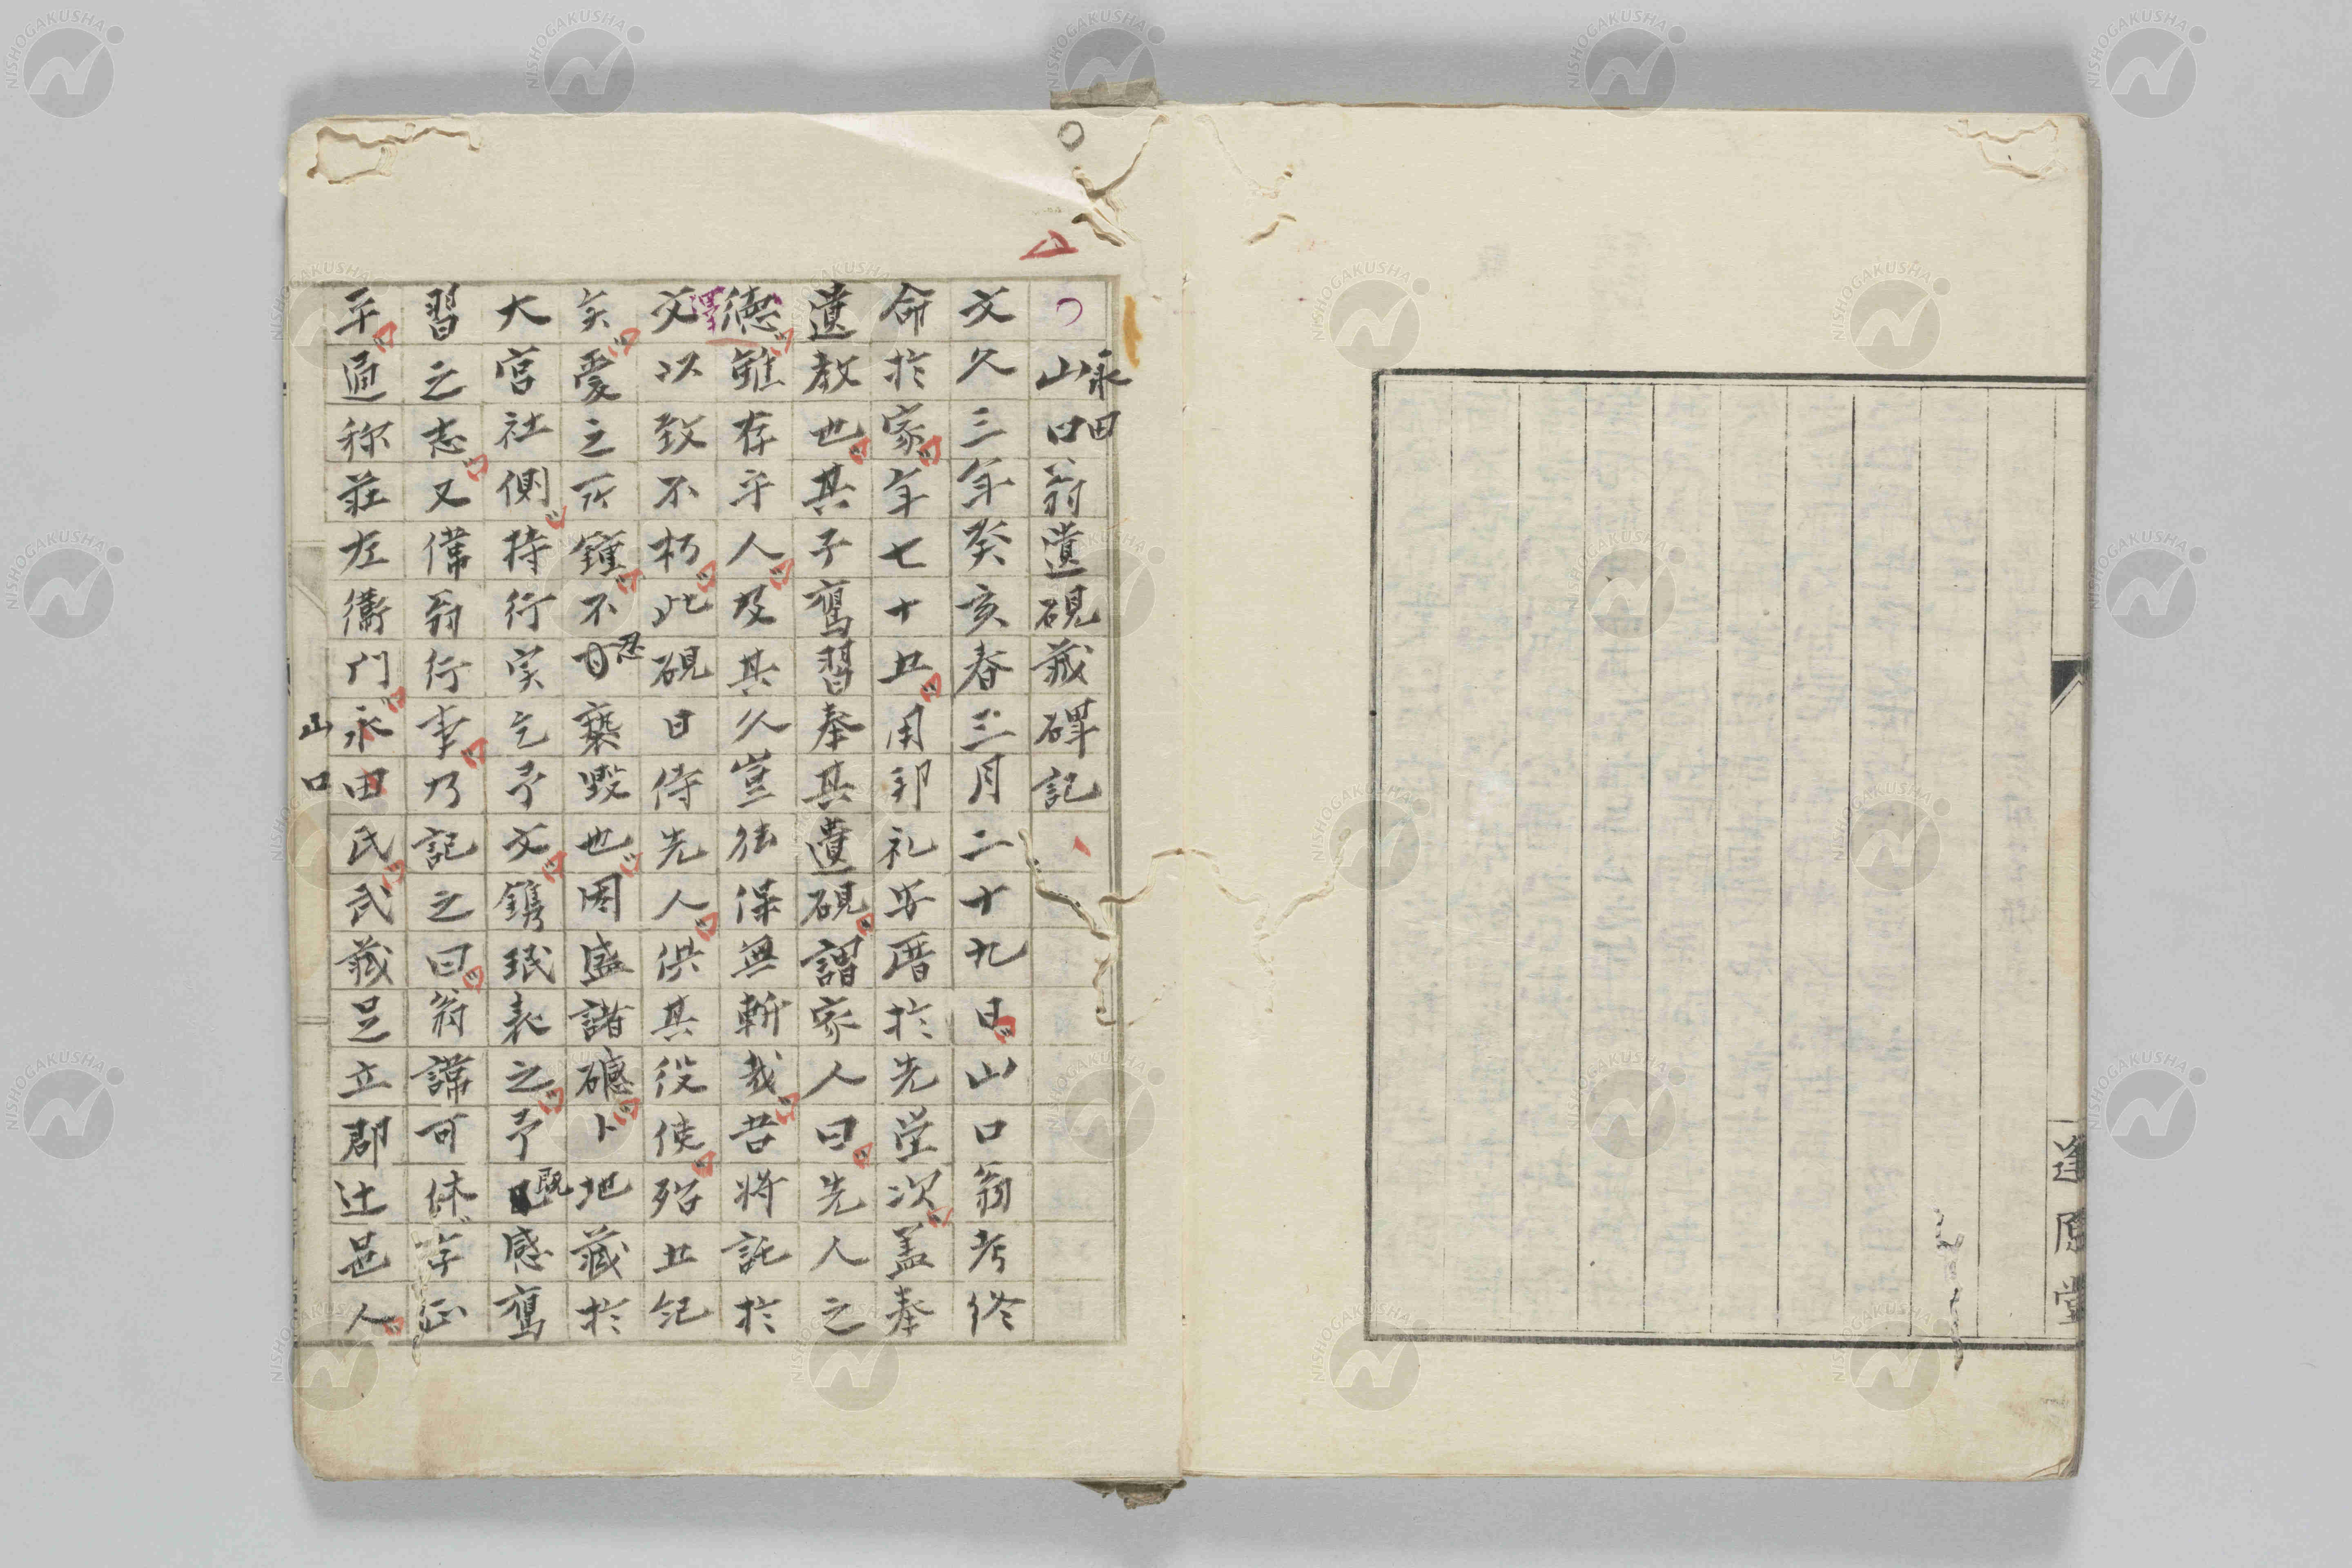 逢原堂
永田
山口翁遺硯蔵碑記
文久三年癸亥春三月二十九日山口翁考終
命於家年七十五用邦礼安厝於先塋次盖奉
遺教也其子寯習奉其遺硯謂家人曰先人之
徳雖存乎人及其久豈待保無斬哉苦将託於
澤
文以致不朽此硯日侍先人供其役使殆五紀
矣愛之所鍾不日褻毀也因盛諸礠卜地蔵於
忍
大宮社側持行実乞予文鐫珉表之予感寯
既
習之志又偉翁行事乃記之曰翁諱可休字正
平通称荘左衛門永田氏武蔵足立郡辻邑人
山口
NISHOGAKUSHA